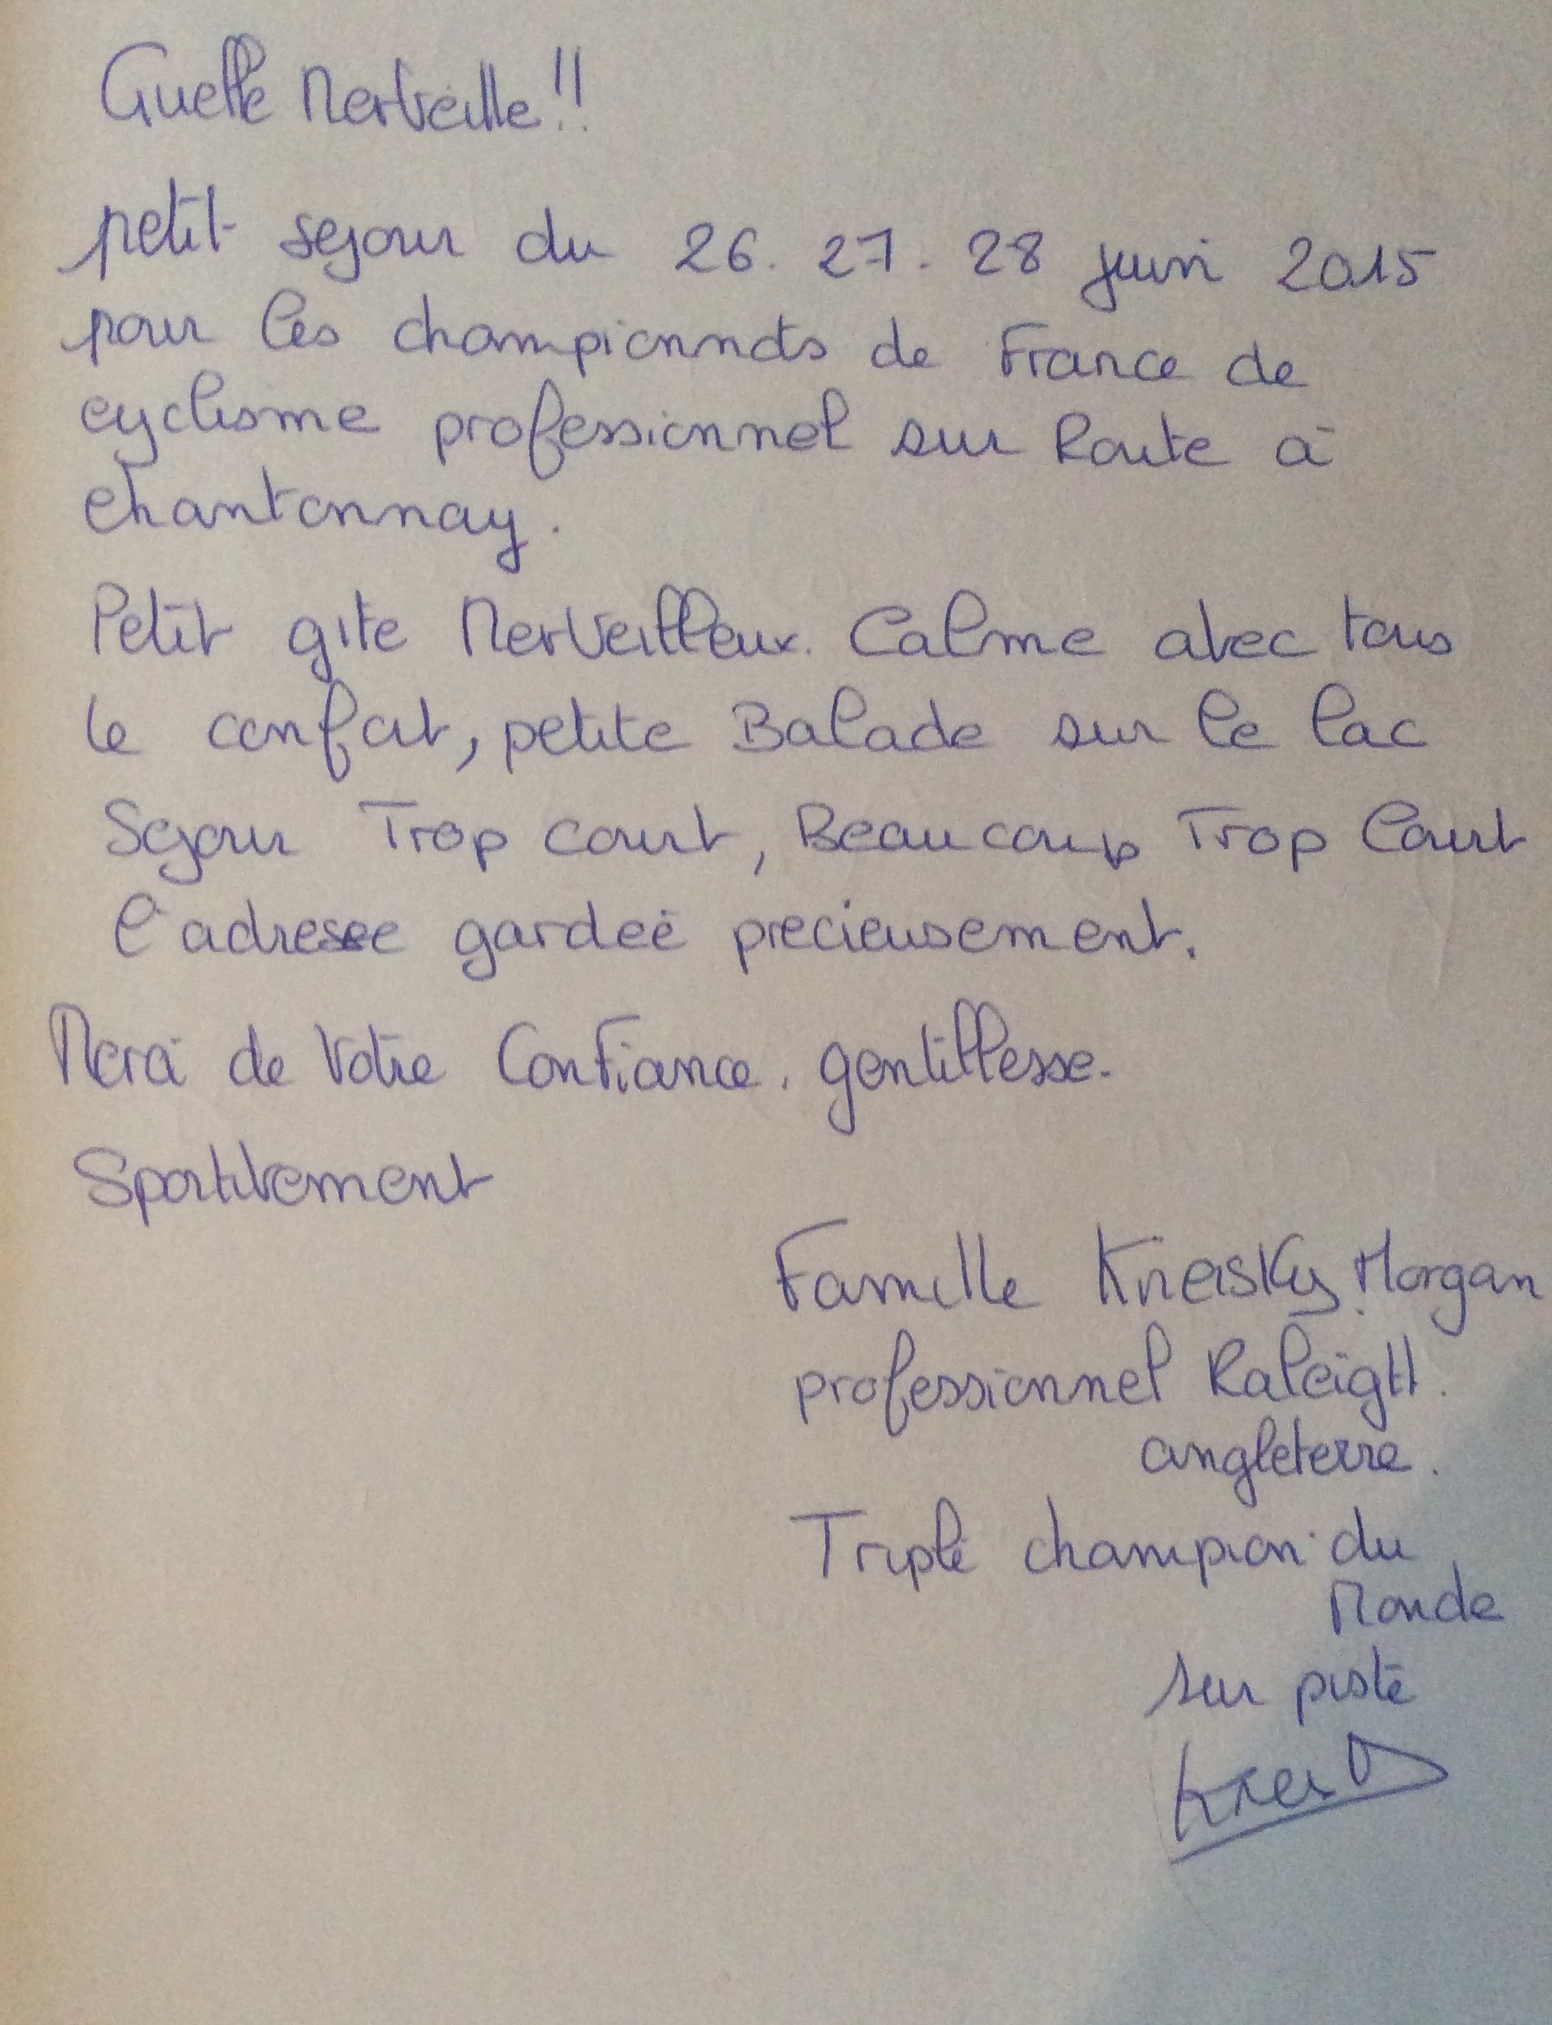 Quelle Merveille!!
petit sejour du 26. 27. 28 juin 2015
pour les championnats de France de
cyclisme professionnel sur Route à
chantonnay.
Petit gite Merveilleux. Calme avec tous
le confort, petite Balade sur le lac
Sejour Trop court, Beaucoup Trop Court
l'adresse gardeé precieusement.
Merci de Votre Confiance. gentillesse.
Sportivement
Famille Kreisky Morgan
professionnel RaleigH.
angleterre.
Triple champion du
Monde
sur piste